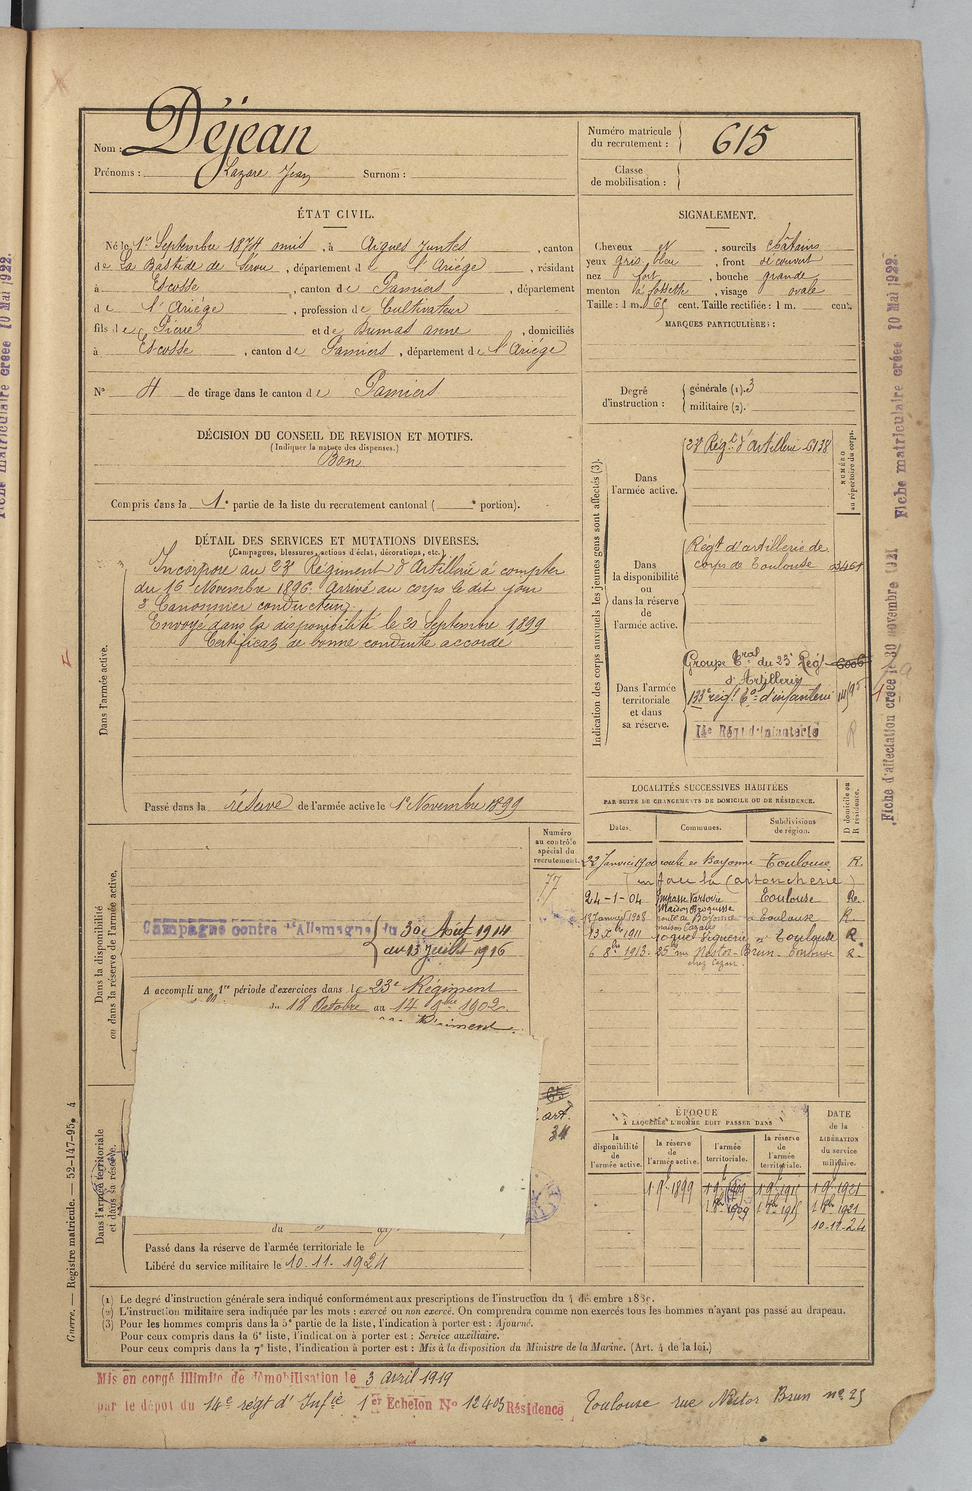 Nom : Déjean
Prénoms : Lazare Jean Surnom :
Numéro matricule du recrutement : 615
Classe de mobilisation :
ÉTAT CIVIL.
Né le 1er Septembre 1874 omis, à Aigues Juntes, canton
de La Bastide de Sérou, département de l'Ariège, résidant
à Escosse, canton de Pamiers, département
de l'Ariège, profession de Cultivateur
fils de Pierre et de Dumas Anne, domiciliés
à Escosse, canton de Pamiers, département de l'Ariège
N° 4 de tirage dans le canton de Pamiers
SIGNALEMENT.
Cheveux N, sourcils châtains
yeux gris bleu, front découvert
nez fort, bouche grande
menton à fossette, visage ovale
Taille : 1 m. 65 cent. Taille rectifiée : 1 m. cent.
MARQUES PARTICULIÈRES :
Degré d'instruction : générale (1). 3
militaire (2).
DÉCISION DU CONSEIL DE REVISION ET MOTIFS.
(Indiquer la nature des dispenses.)
Bon
Compris dans la 1e partie de la liste du recrutement cantonal ( e portion).
DÉTAIL DES SERVICES ET MUTATIONS DIVERSES.
(Campagnes, blessures, actions d'éclat, décorations, etc.)
Dans l'armée active.
Incorporé au 23e Régiment d'Artillerie à compter
du 16 Novembre 1896. Arrivé au corps le dit jour
2e Canonnier conducteur
Envoyé dans la disponibilité le 20 Septembre 1899
Certificat de bonne conduite accordé
Passé dans la réserve de l'armée active le 1er Novembre 1899
Indication des corps auxquels les jeunes gens sont affectés (3).
NUMÉRO au répertoire du corps.
Dans l'armée active.
23e Régt d'Artillerie 6138
Dans la disponibilité ou dans la réserve de l'armée active.
Régt d'artillerie de
corps de Toulouse
Dans l'armée territoriale et dans sa réserve.
Groupe Tral du 23e Régt
d'Artillerie
133e régt Tal d'infanterie
14e Régt d'Infanterie
R
LOCALITÉS SUCCESSIVES HABITÉES
PAR SUITE DE CHANGEMENTS DE DOMICILE OU DE RÉSIDENCE.
Dates. Communes. Subdivisions de région. D domicile ou R résidence.
22 Janvier 1900 route de Bayonne Toulouse R.
24-1-04 Impasse Varsovie Toulouse Re.
17 Janvier 1908 route de Bayonne Toulouse R.
1911 Toulouse R.
1913 25 rue Nestor-Brun Toulouse R.
Numéro au contrôle spécial du recrutement.
77
Dans la disponibilité ou dans la réserve de l'armée active.
Campagne contre l'Allemagne du 30 Août 1914
au 13 Juillet 1916
A accompli une 1re période d'exercices dans le 23e Régiment
du 18 Octobre au 14 9bre 1902.
65
art.
34
Dans l'armée territoriale et dans sa réserve.
Passé dans la réserve de l'armée territoriale le
Libéré du service militaire le 10.11.1924
ÉPOQUE
À LAQUELLE L'HOMME DOIT PASSER DANS
la disponibilité de l'armée active. la réserve de l'armée active. l'armée territoriale. la réserve de l'armée territoriale.
DATE de la LIBÉRATION du service militaire.
1 9bre 1899 1 9bre 1909 1 9bre 1915 1 9bre 1921
1 8bre 1909 1 8bre 1915 1 8bre 1921
10-11-24
(1) Le degré d'instruction générale sera indiqué conformément aux prescriptions de l'instruction du 4 décembre 1889.
(2) L'instruction militaire sera indiquée par les mots : exercé ou non exercé. On comprendra comme non exercés tous les hommes n'ayant pas passé au drapeau.
(3) Pour les hommes compris dans la 5e partie de la liste, l'indication à porter est : Ajourné.
Pour ceux compris dans la 6e liste, l'indication à porter est : Service auxiliaire.
Pour ceux compris dans la 7e liste, l'indication à porter est : Mis à la disposition du Ministre de la Marine. (Art. 4 de la loi.)
Guerre. — Registre matricule. — 52-147-95. 4
Mis en congé illimité de démobilisation le 3 avril 1919
par le dépôt du 14e régt d'Infie 1er Echelon N° 12403 Résidence Toulouse rue Nestor Brun n° 25
Fiche matriculaire créée 10 Mai 1922.
Fiche d'affectation créée le 30 novembre 1921
Fiche matriculaire créée 10 Mai 1922.